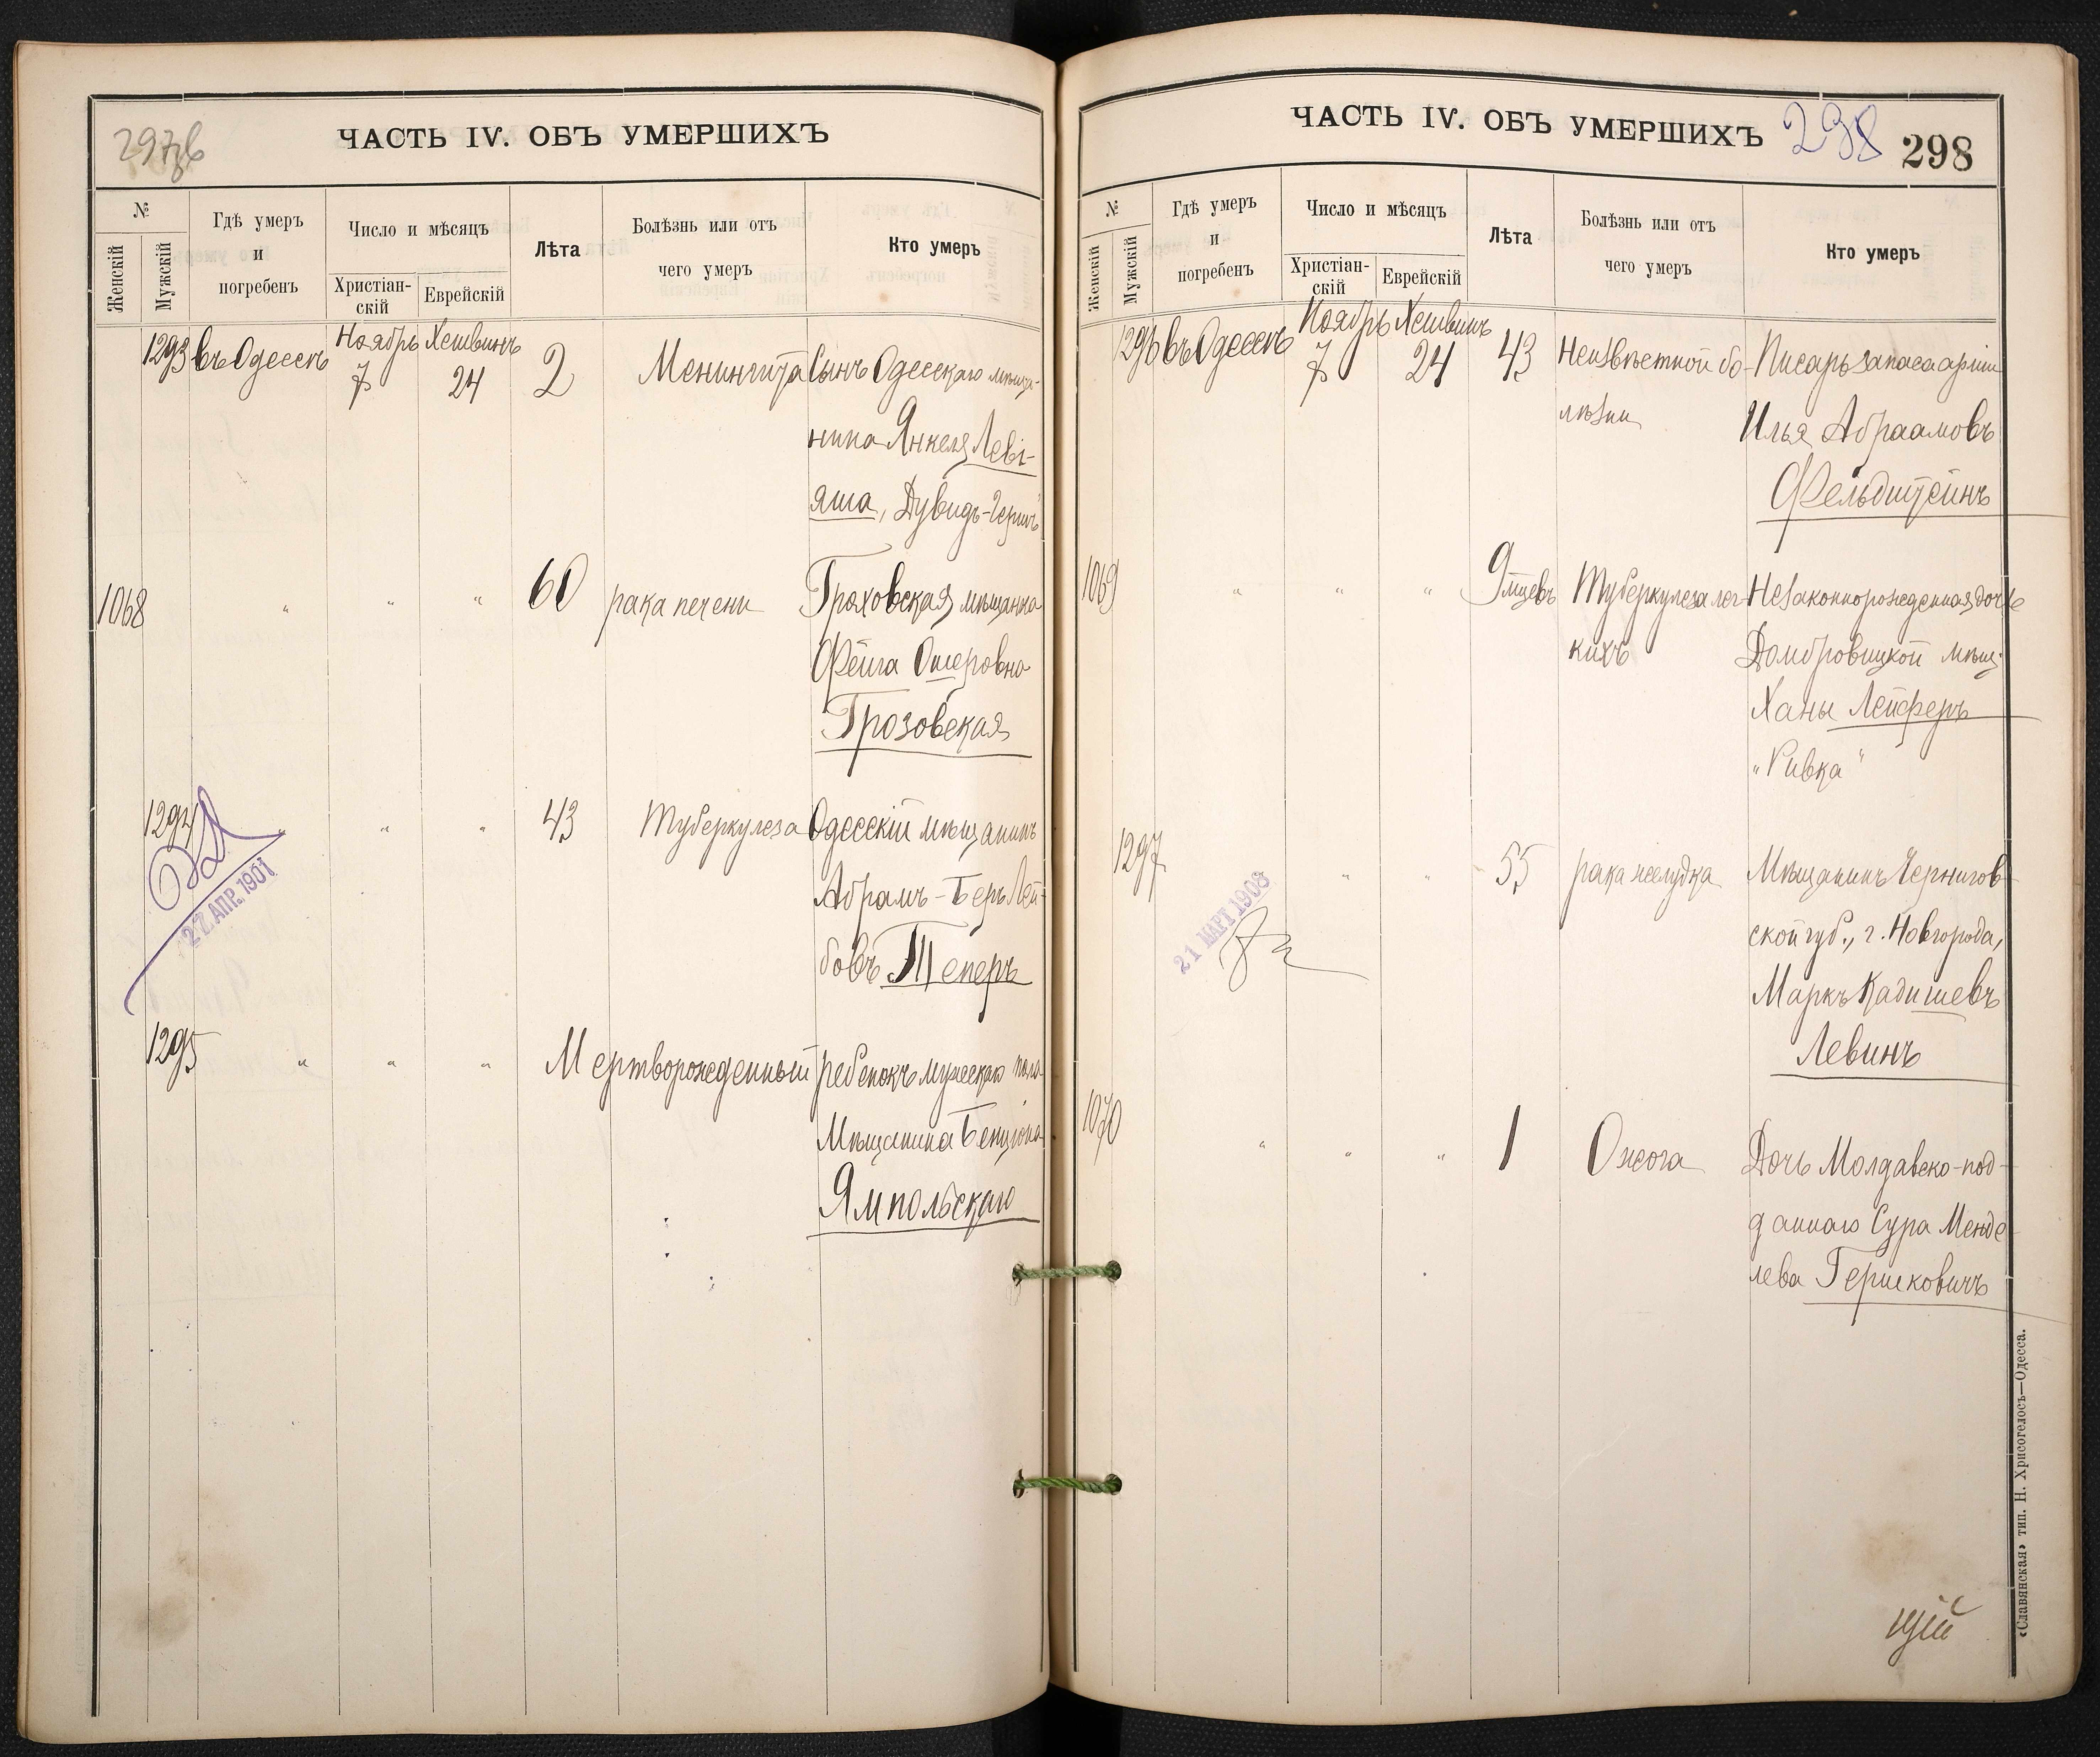 297об
ЧАСТЬ IV. ОБЪ УМЕРШИХЪ
№
Женскій
Мужскій
Гдѣ умеръ
и
погребенъ
Число и мѣсяцъ
Христіан-
скій
Еврейскій
Лѣта
Болѣзнь или отъ
чего умеръ
Кто умеръ
1293 въ Одессѣ Ноябрь 7 Хешвинъ 24 2 Менингита Сынъ Одесскаго мѣща-
нина Янкеля Леві-
яша, Дувидъ-Гершъ
1068 " " " 60 рака печени Гроховская мѣщанка
Фейга Ошеровна
Грозовская
1294 " " " 43 Туберкулеза Одесскій мѣщанинъ
Абрамъ-Беръ Лей-
бовъ Теперъ
27 АПР. 1901
1295 " " " Мертворожденный ребенокъ мужескаго пола
Мѣщанина Бенціона
Ямпольскаго
ЧАСТЬ IV. ОБЪ УМЕРШИХЪ
298
298
№
Женскій
Мужскій
Гдѣ умеръ
и
погребенъ
Число и мѣсяцъ
Христіан-
скій
Еврейскій
Лѣта
Болѣзнь или отъ
чего умеръ
Кто умеръ
1296 въ Одессѣ Ноябрь 7 Хешвинъ 24 43 Неизвѣстной бо- Писарь запаса арміи
лѣзни Илья Абраамовъ
Фельдштейнъ
1069 " " " 9 мцевъ Туберкулеза лег- Незаконнорожденная дочь
кихъ Домбровицкой мѣщ.
Ханы Лейферъ
"Ривка"
1297 " " 55 рака желудка Мѣщанинъ Чернигов-
ской губ., г. Новгорода,
Маркъ Кадишевъ
Левинъ
21 МАРТ 1908
1070 " " " 1 Ожога Дочь Молдавско-под-
даннаго Сура Менде-
лева Гершковичъ
щій
«Славянская» тип. Н. Хрисогелосъ—Одесса.